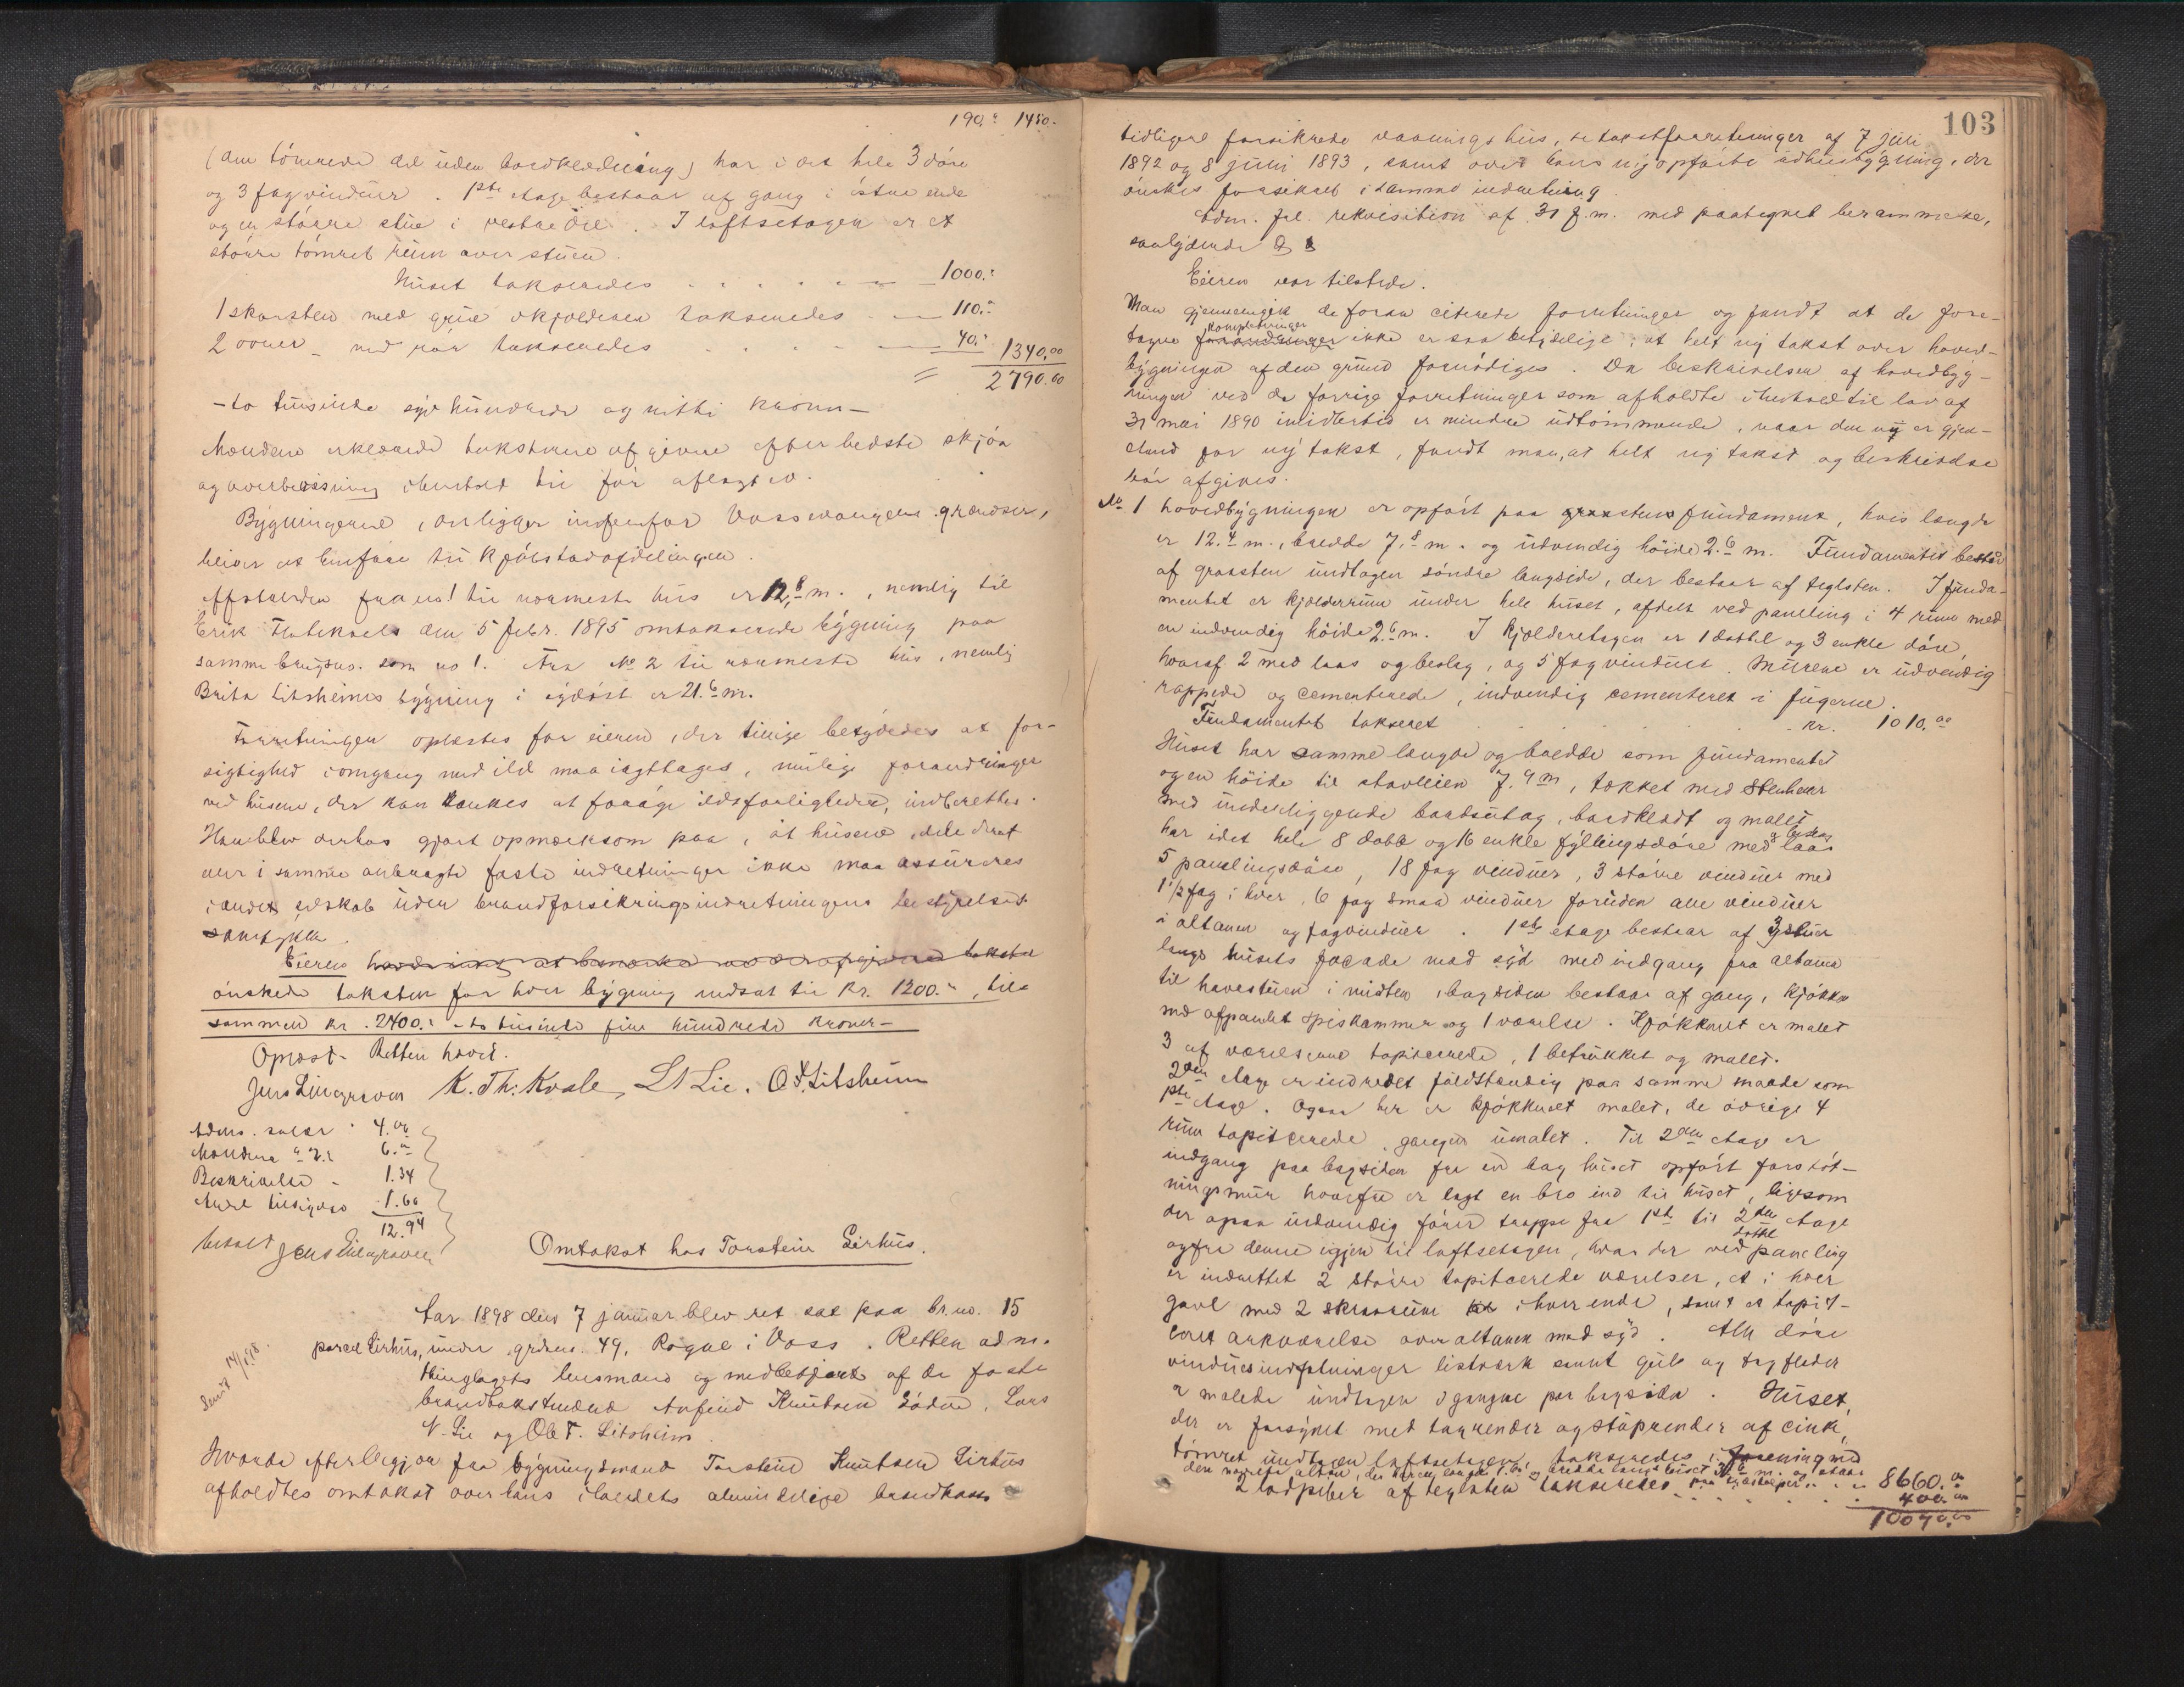 190." 1450.-
(den tömrede del uden bordklædning) har i det hele 3 döre
og 3 fag vinduer. 1ste etage bestaar af gang i östre ende
og en större stue i vestre del. I loftsetagen er et
större tömret rum over stuen.
Huset takseredes 1000."
1 skorsten med grue i kjelderen takseredes 110."
2 ovner med rör takseredes 40." 1340,00
= 2790.00
- to tusinde syv hundrede og nitti kroner -
Mændene erklærede taksterne afgivne efter bedste skjön
og overbevisning i henhold til för aflagt ed.
Bygningerne, der ligger indenfor Vossevangens grændser,
bliver at henføre til kjöbstadafdelingen.
Afstanden fra no 1 til nærmeste hus er 12,8 m., nemlig til
Erik den 5 febr. 1895 omtakserede bygning paa
samme brugsno. som no 1. Fra No 2 til nærmeste hus, nemlig
Brita Litsheims bygning i sydöst er 21.6 m.
Forretningen oplæstes for eieren, der tillige betydedes at for-
sigtighed i omgang med ild maa iagttages, mulige forandringer
ved husene, der kan tænkes at foröge ildsfarligheden, indberettes.
Han blev derhos gjort opmerksom paa, at husene, dele deraf
eller i samme anbragte faste indretninger ikke maa assureres
i andet selskab uden brandforsikringsindretningens bestyrelses
samtykke.
Eieren havde intet at bemærke ved de afgivne takster
önskede taksten for hver bygning nedsat til kr. 1200.", til-
sammen kr. 2400." - to tusinde fire hundrede kroner -
Oplæst. Retten hævet.
Jens Lilegraven K. Th. Kvale, L N Lie. O. T. Litsheim
Adms. salær 4.00
Mændene a 2." 6."
Beskrivelse - 1.34
1.60
12.94
betalt Jens Lilegraven
Omtakst hos Torstein Lirhus.
Sendt 14/1 98.
Aar 1898 den 7 januar blev ret sat paa br.no. 15
parcel Lirhus, under grdsno. 49, Rogne i Voss. Retten adm.
thinglagets lensmand og medbetjent af de faste
brandtakstmænd Anfind Knutsen Lödve, Lars
N. Lie og Ole T. Litsheim.
Hvorda efter begjær fra bygningsmand Torstein Knutsen Lirhus
afholdtes omtakst over hans i landets almindelige brandkasse
103
tidligere forsikrede vaaningshus, se takstforretninger af 7 juli
1892 og 8 juni 1893, samt over hans nyopförte udhusbygning, der
önskes forsikret i samme indretning.
Adm. frl. rekvisition af 31 f.m. med paategnet berammelse,
saalydende
Eieren var tilstede.
Man gjennemgik de foran citerede forretninger og fandt at de fore-
kompletteringer
tagne forandringer ikke er saa betydelige, at helt ny takst over hoved-
bygningen af den grund fornödiges. Da beskrivelsen af hovedbyg-
ningen ved de forrige forretninger som afholdte i henhold til lov af
31 mai 1890 imidlertid er mindre udtömmende, naar den ny er gjen-
stand for ny takst, fandt man, at helt ny takst og beskrivelse
bör afgives.
No. 1 hovedbygningen er opfört paa graastens fundament, hvis længde
er 12.4 m., bredde 7.8 m. og udvendig höide 2.6 m. Fundamentet bestaar
af graasten undtagen söndre langside, der bestaar af teglsten. I funda-
mentet er kjelderrum under hele huset, afdelt ved paneling i 4 rum med
en indvendig höide 2.6 m. I kjelderetagen er 1 dobbel og 3 enkle döre,
hvoraf 2 med laas og beslag, og 5 fag vinduer. Murene er udvendig
rappede og cementerede, indvendig cementeret i fugerne.
Fundamentet takseret kr. 1010.00
Huset har samme længde og bredde som fundamentet
og en höide til stavleien 7.9 m, tækket med Stenheller
med underliggende bordsutag, bordklædt og malet
har idet hele 8 doble og 16 enkle fyllingsdöre med laas
og beslag
5 panelingsdöre, 18 fag vinduer, 3 större vinduer med
1 1/2 fag i hver, 6 fag smaa vinduer foruden alle vinduer
i altanen og fagvinduer. 1ste etage bestaar af 3 stuer
langs husets façade mod syd med indgang fra altanen
til havestuen i midten, bagsiden bestaar af gang, kjökken
med afpanelet spiskammer og 1 værelse. Kjökkenet er malet
3 af værelserne tapiserede, 1 betrukket og malet.
2den etage er indredet fuldstændig paa samme maade som
1ste etage. Ogsaa her er kjökkenet malet, de övrige 4
rum tapiserede, gangen umalet. Til 2den etage er
indgang paa bagsiden fra en bag huset opfört forstöt-
ningsmur hvorfra er lagt en bro ind til huset, ligesom
der ogsaa indvendig förer trappe fra 1ste til 2den etage
og fra denne igjen til loftsetagen, hvor der ved paneling
er indrettet 2 större tapiserede værelser, et i hver
gavl med 2 skraarum i hver ende, samt et tapit-
seret arkværelse over altanen mod syd. Alle döre
vinduesindfatninger listværk samt gulv og tagflader
er malede undtagen i gangene paa bagsiden. Huset,
der er forsynet med tagrender og stuprender af cink,
tömret undtagen loftsetagen, takseredes i forening med
den nævnte altan 8660.00
2 ladpiber af teglsten takseredes 400.00
10070.00